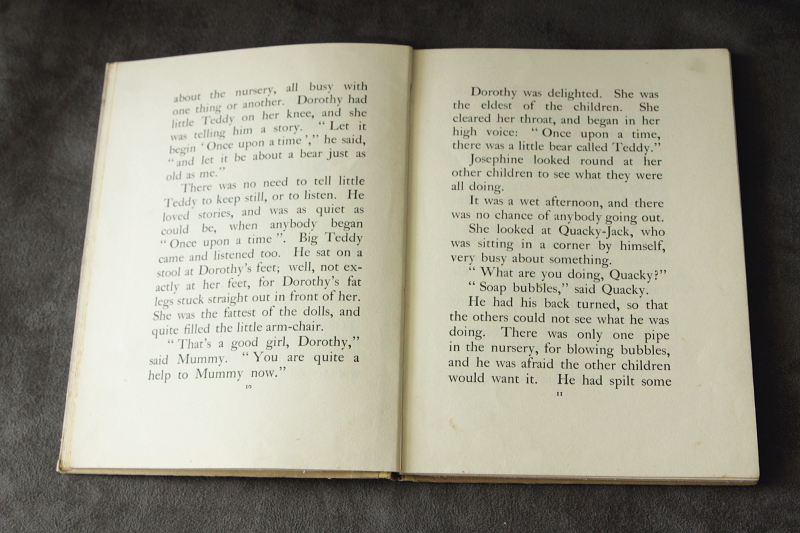 about the nursery, all busy with
one thing or another. Dorothy had
little Teddy on her knee, and she
was telling him a story. “Let it
begin ‘Once upon a time’,” he said,
“and let it be about a bear just as
old as me.”
There was no need to tell little
Teddy to keep still, or to listen. He
loved stories, and was as quiet as
could be, when anybody began
“Once upon a time”. Big Teddy
came and listened too. He sat on a
stool at Dorothy’s feet; well, not ex-
actly at her feet, for Dorothy’s fat
legs stuck straight out in front of her.
She was the fattest of the dolls, and
quite filled the little arm-chair.
“That’s a good girl, Dorothy,”
said Mummy. “You are quite a
help to Mummy now.”
10
Dorothy was delighted. She was
the eldest of the children. She
cleared her throat, and began in her
high voice: “Once upon a time,
there was a little bear called Teddy.”
Josephine looked round at her
other children to see what they were
all doing.
It was a wet afternoon, and there
was no chance of anybody going out.
She looked at Quacky-Jack, who
was sitting in a corner by himself,
very busy about something.
“What are you doing, Quacky?”
“Soap bubbles,” said Quacky.
He had his back turned, so that
the others could not see what he was
doing. There was only one pipe
in the nursery, for blowing bubbles,
and he was afraid the other children
would want it. He had spilt some
11